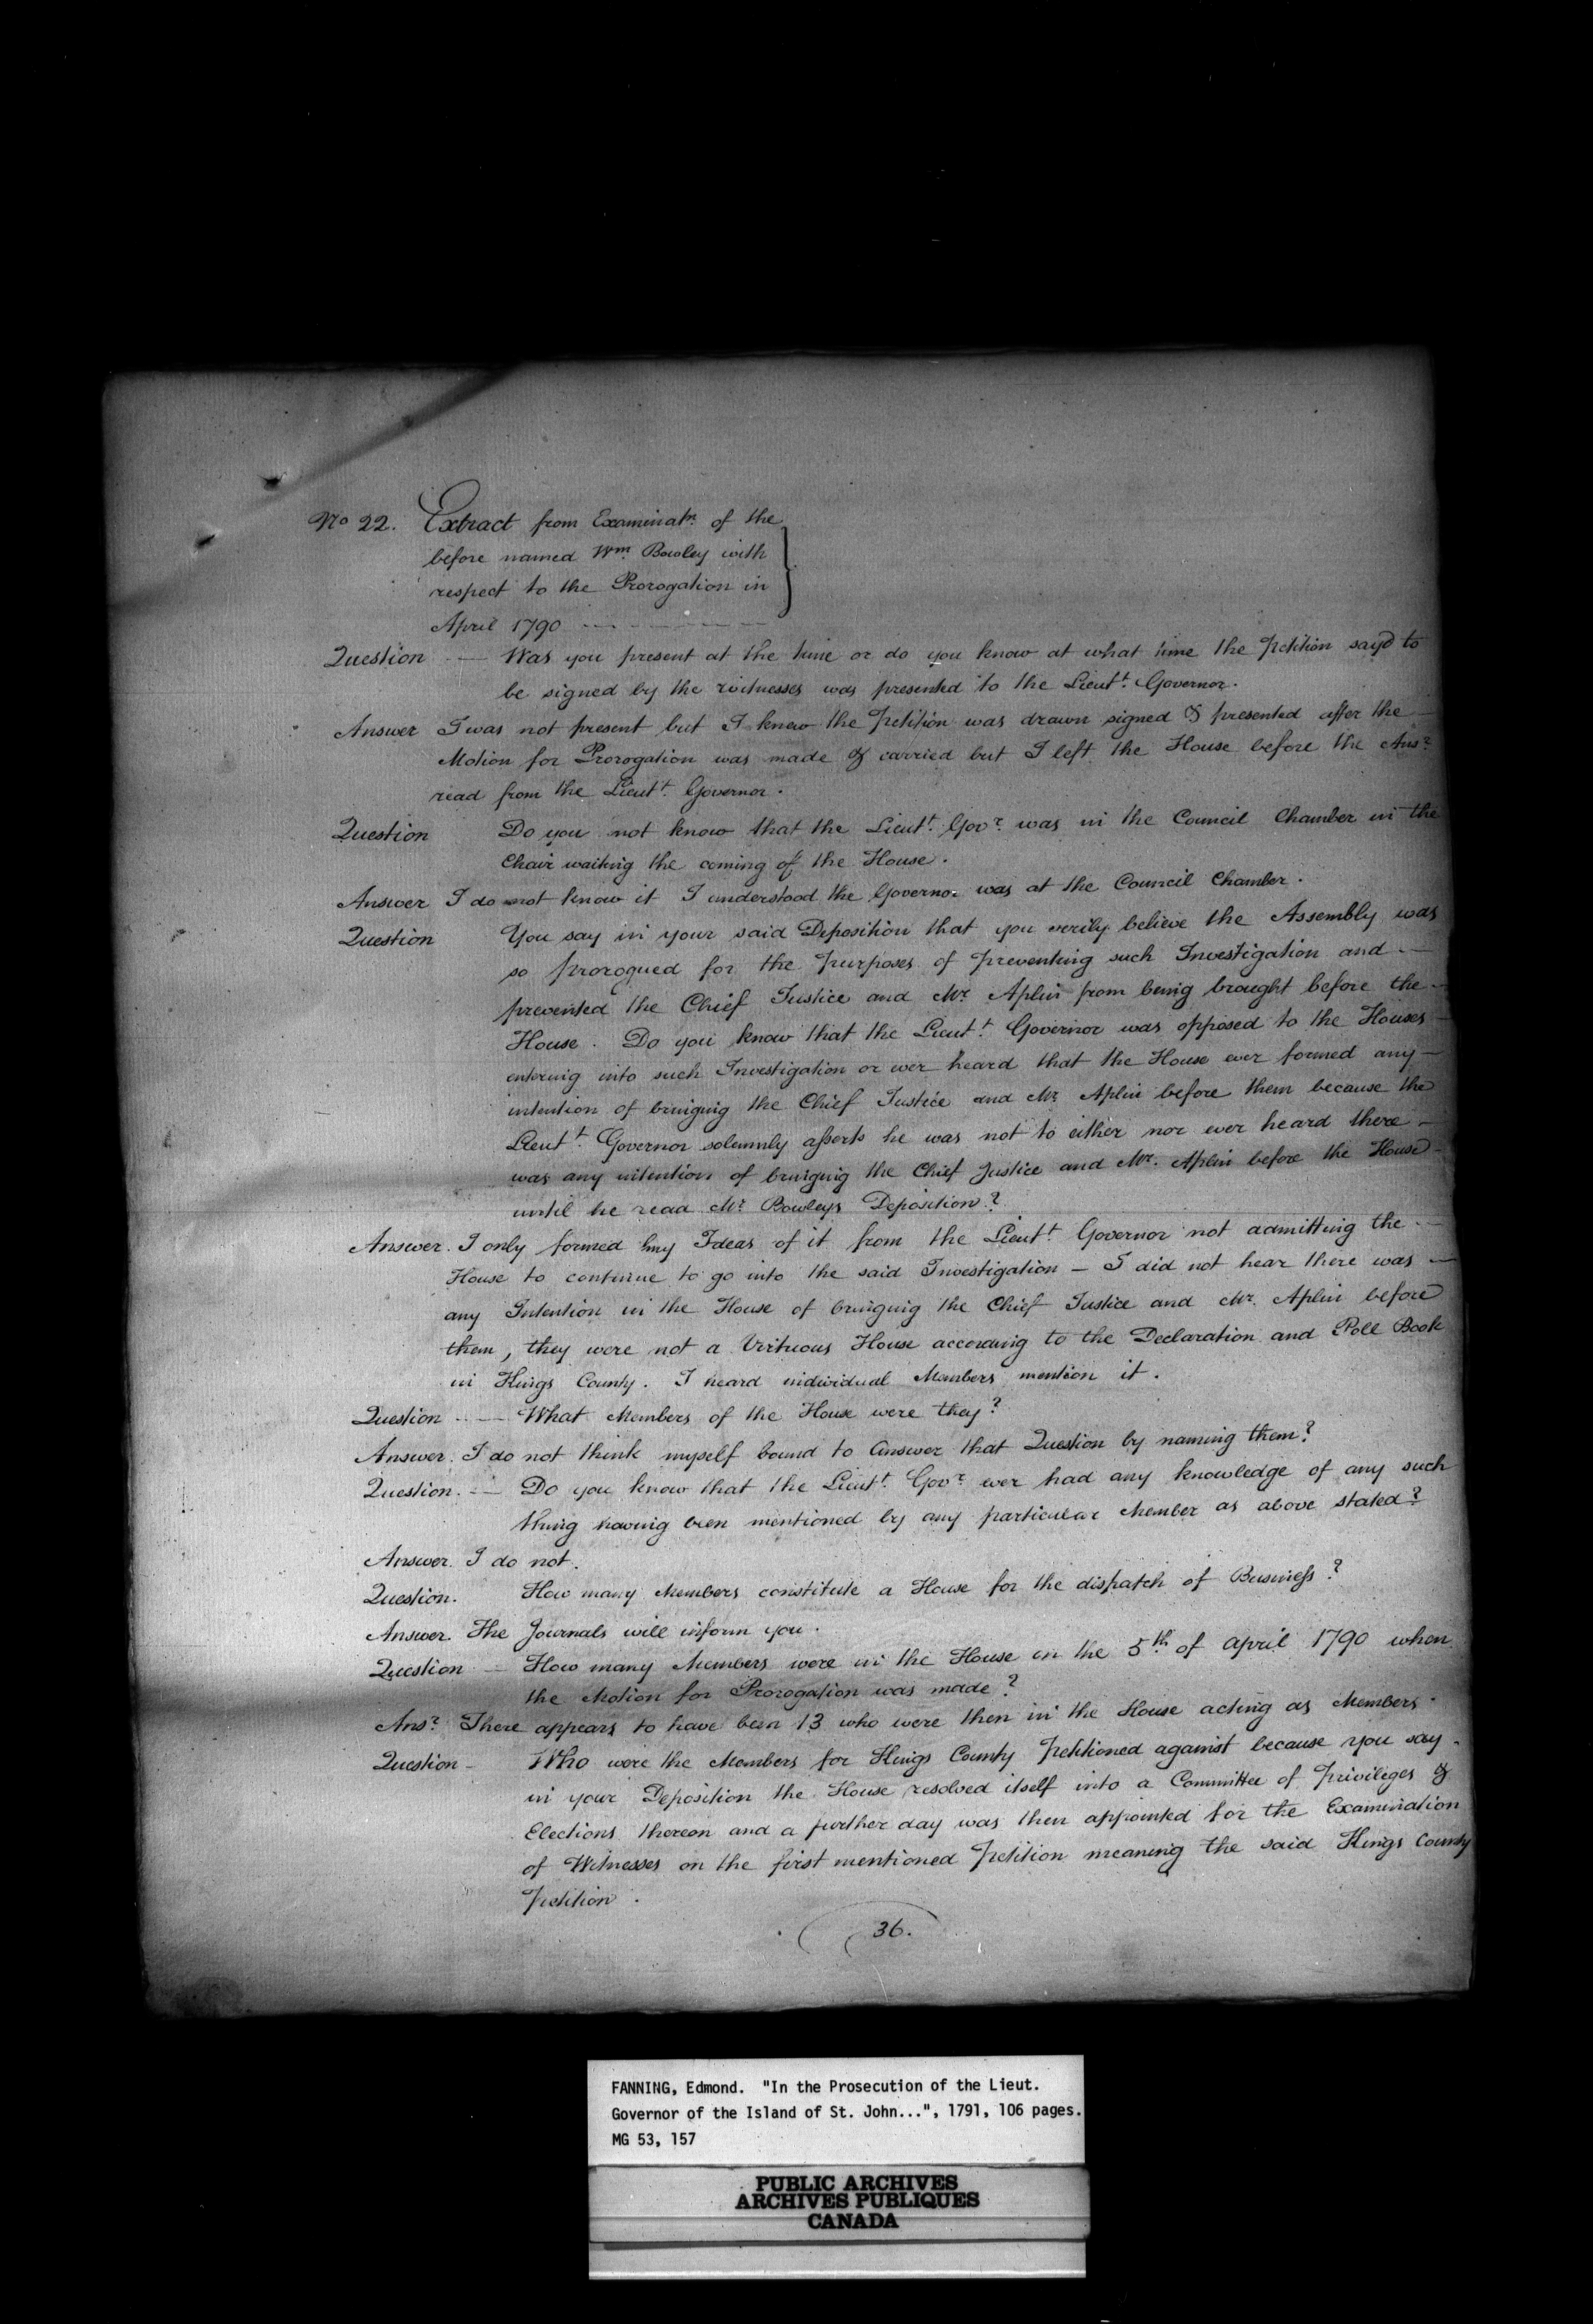 No 22. Extract from Examinatn. of the
before named Wm. Bowley with
respect to the Prorogation in
April 1790
Question — Was you present at the time or do you know at what time the Petition sayd to
be signed by the witnesses was presented to the Lieutt. Governor.
Answer I was not present but I know the Petition was drawn signed & presented after the —
Motion for Prorogation was made & carried but I left the House before the Ansr.
read from the Lieutt. Governor.
Question Do you not know that the Lieutt. Govr. was in the Council Chamber in the
Chair waiting the coming of the House.
Answer I do not know it I understood the Governor was at the Council Chamber.
Question You say in your said Deposition that you verily believe the Assembly was
so prorogued for the purposes of preventing such Investigation and —
prevented the Chief Justice and Mr. Aplin from being brought before the —
House. Do you know that the Lieutt. Governor was opposed to the Houses —
entering into such Investigation or ever heard that the House ever formed any —
intention of bringing the Chief Justice and Mr. Aplin before them because the
Lieutt. Governor solemnly asserts he was not to either nor ever heard there —
was any intention of bringing the Chief Justice and Mr. Aplin before the House —
until he read Mr. Bowleys Deposition?
Answer. I only formed my Ideas of it from the Lieutt. Governor not admitting the —
House to continue to go into the said Investigation — I did not hear there was —
any Intention in the House of bringing the Chief Justice and Mr. Aplin before
them, they were not a Virtuous House according to the Declaration and Poll Book
in Kings County. I heard individual Members mention it.
Question — What Members of the House were they?
Answer. I do not think myself bound to answer that Question by naming them?
Question. — Do you know that the Lieutt. Govr. ever had any knowledge of any such
thing having been mentioned by any particular Member as above stated?
Answer. I do not.
Question. How many Members constitute a House for the dispatch of Business?
Answer. The Journals will inform you.
Question — How many Members were in the House on the 5th. of April 1790 when
the Motion for Prorogation was made?
Ansr. There appears to have been 13 who were then in the House acting as Members.
Question — Who were the Members for Kings County Petitioned against because you say —
in your Deposition the House resolved itself into a Committee of Privileges &
Elections thereon and a further day was then appointed for the Examination
of Witnesses on the first mentioned Petition meaning the said Kings County
Petition.
36.
FANNING, Edmond. "In the Prosecution of the Lieut.
Governor of the Island of St. John...", 1791, 106 pages.
MG 53, 157
PUBLIC ARCHIVES
ARCHIVES PUBLIQUES
CANADA